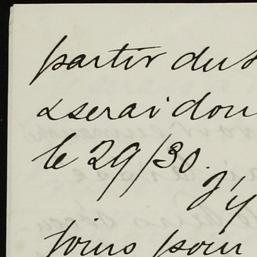 partir du
& serai don
le 29/30.
J'y
jours pour